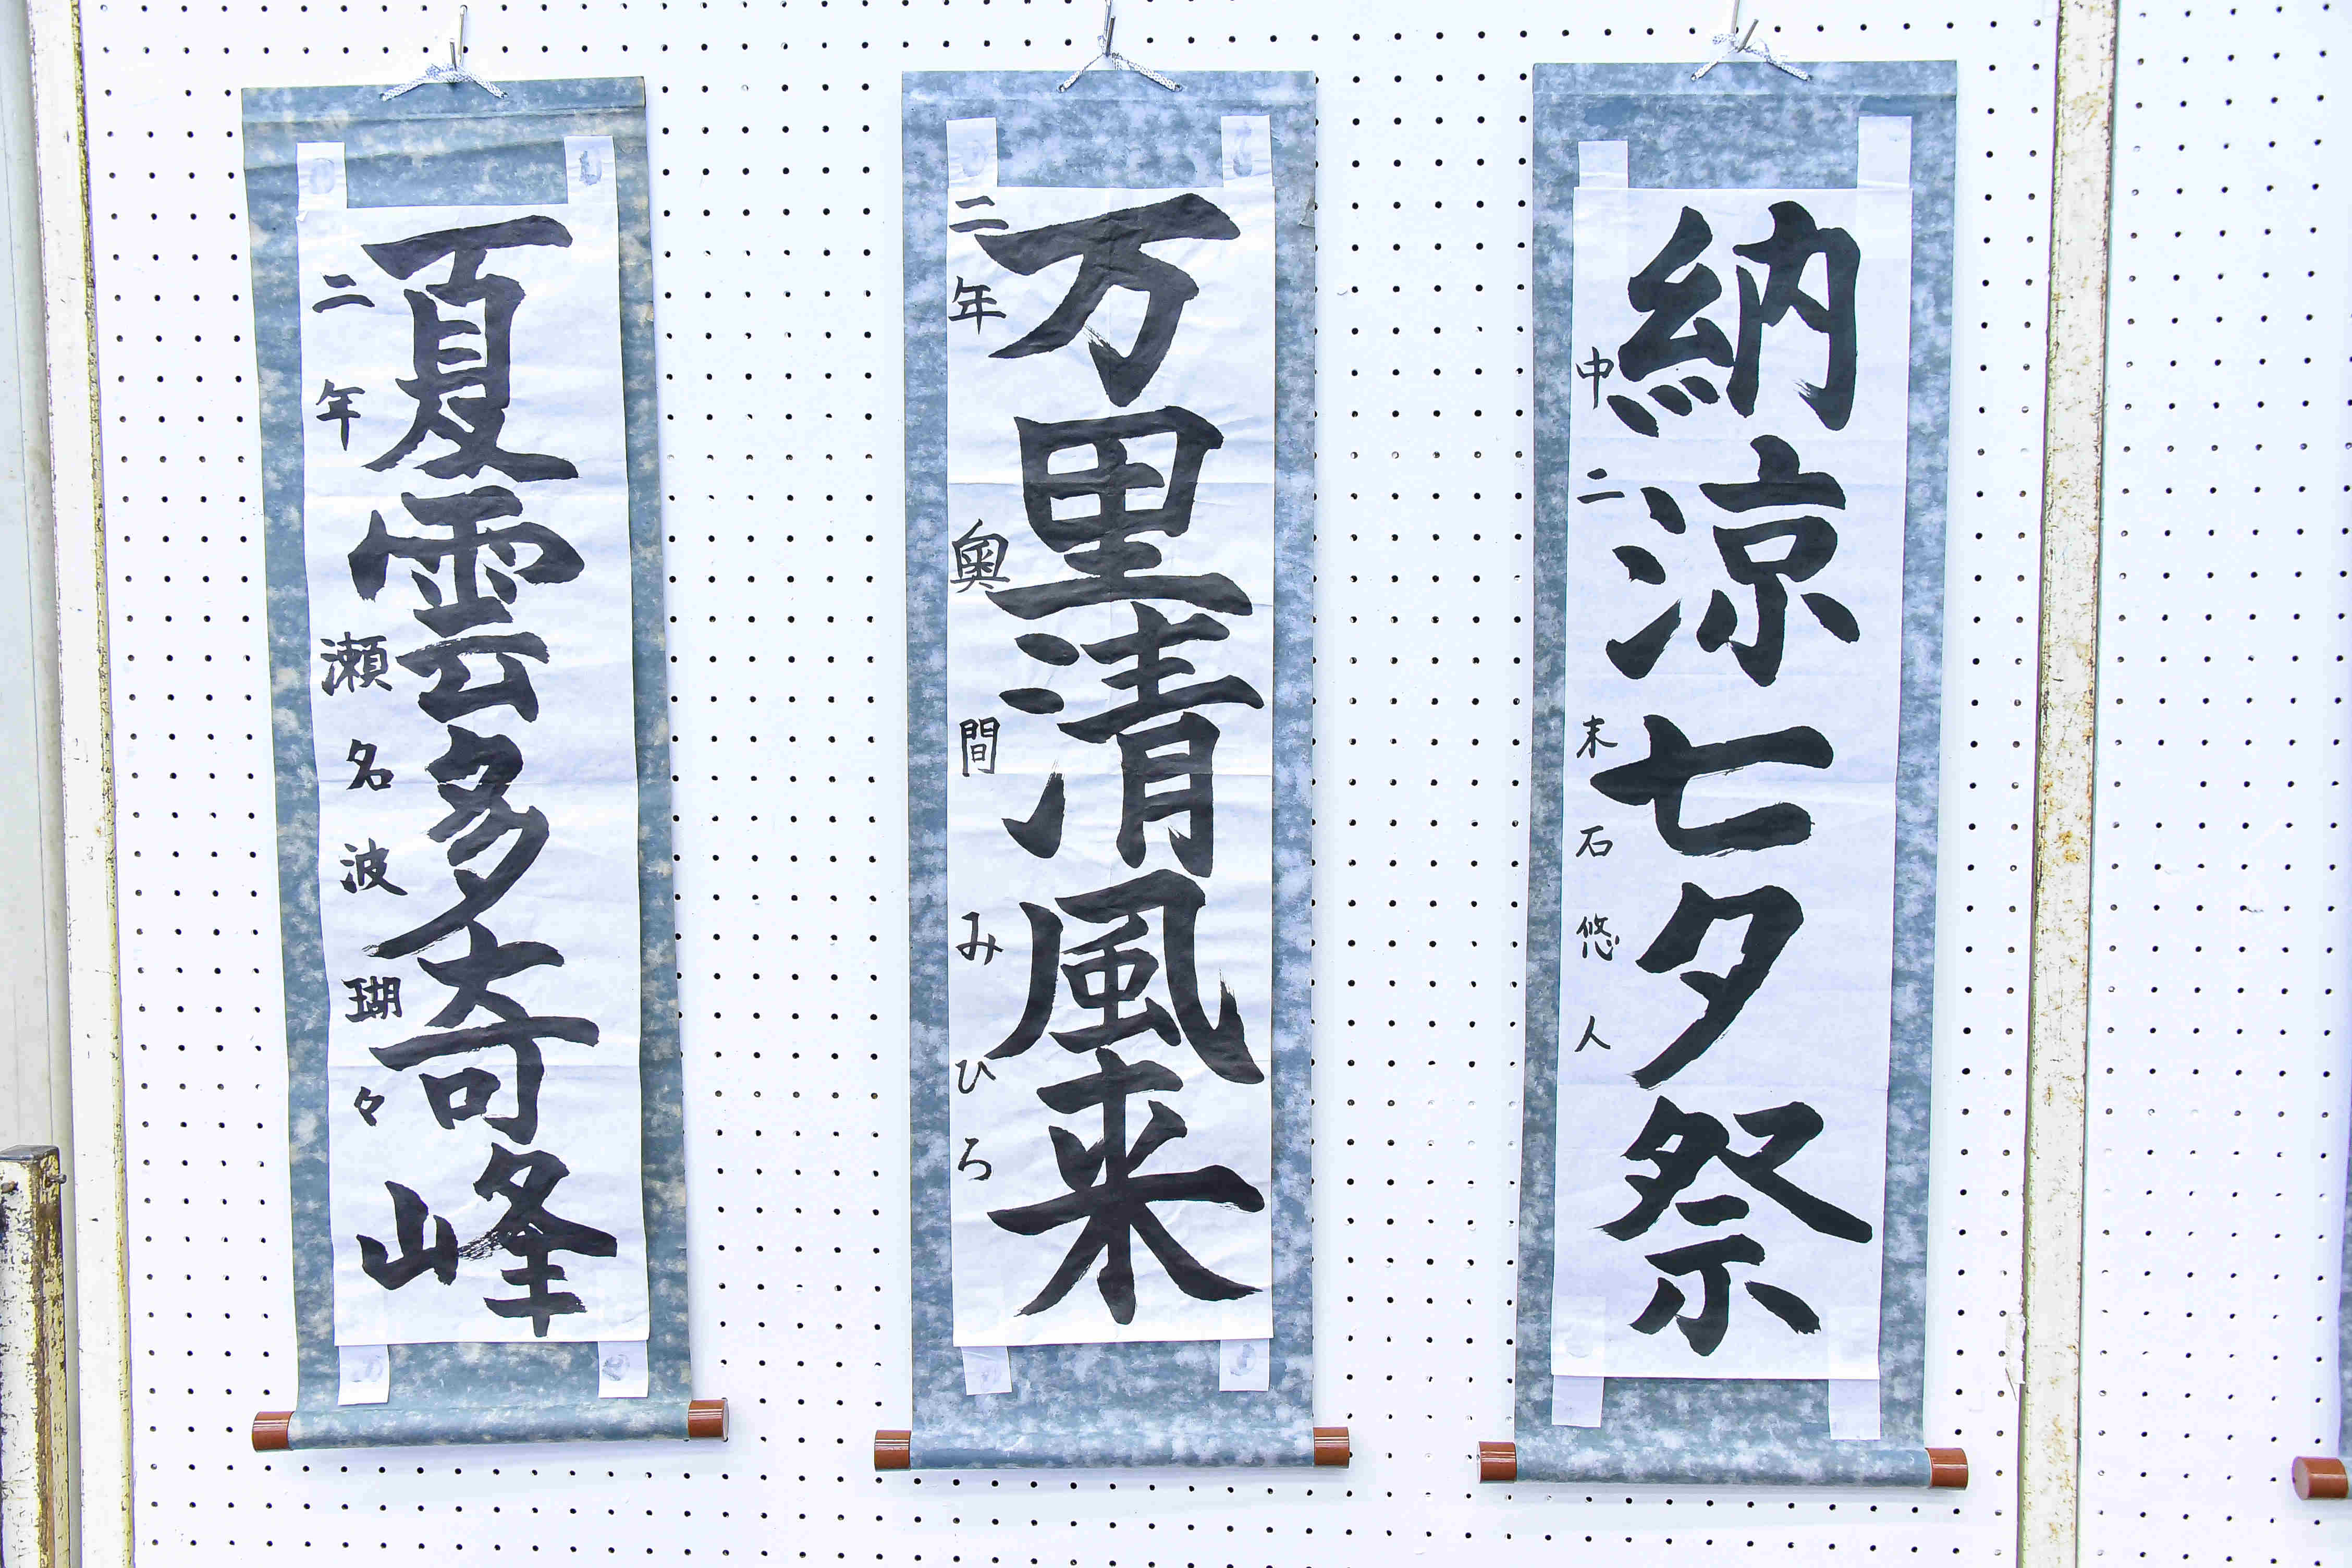 納涼七夕祭
中二 末石悠人
万里清風来
二年 奥間みひろ
夏雲多奇峰
二年 瀬名波瑚々